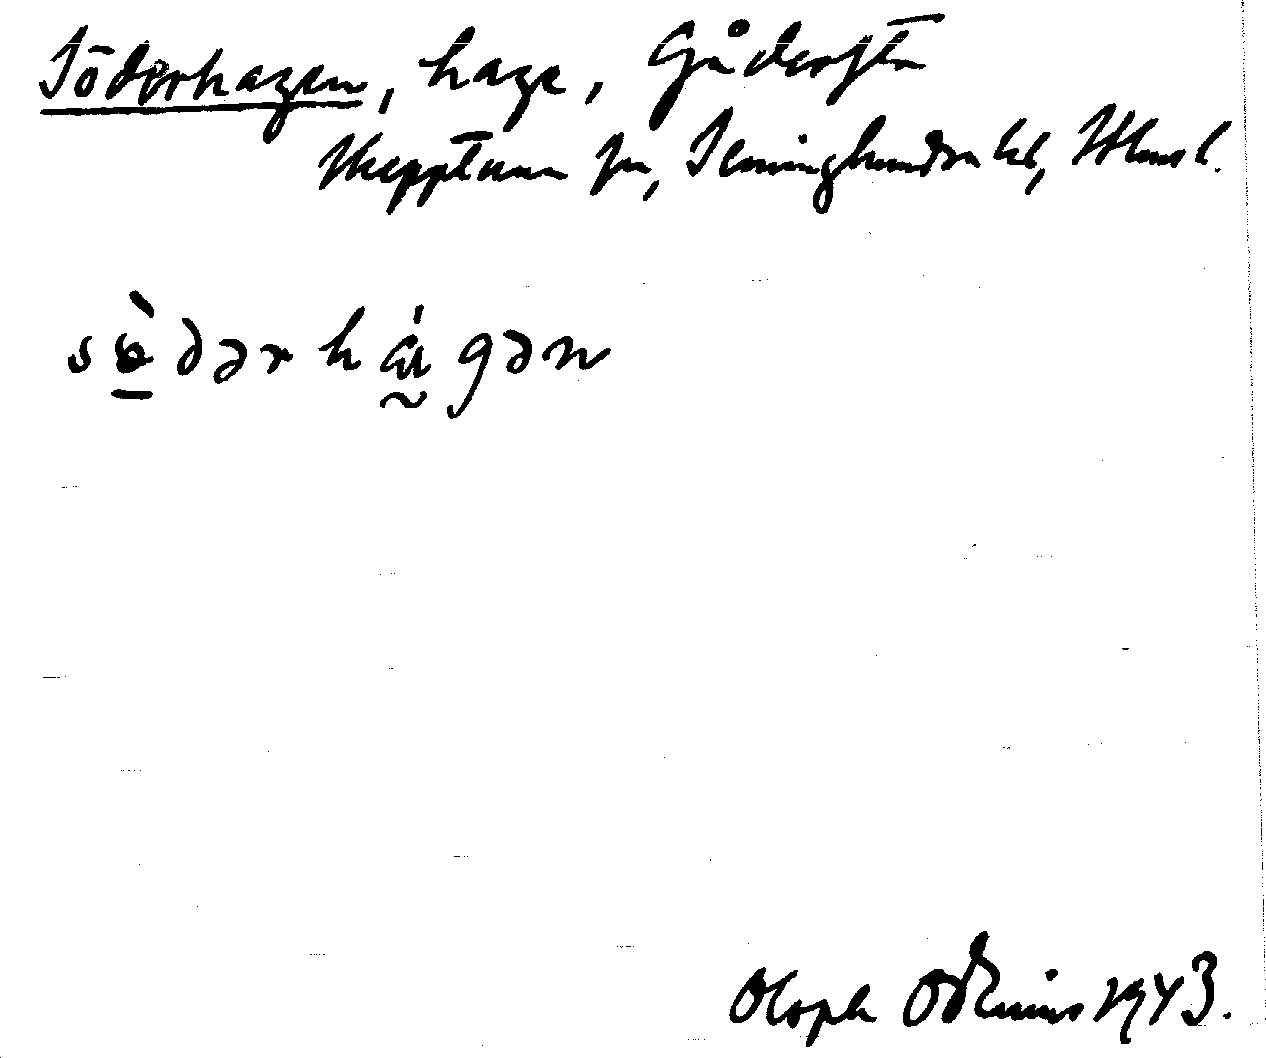 Söderhagen, hage, Gådersta
Skepptuna sn, Seminghundra hd, Sthms l.
sø̀dərhágən
Oloph Odenius 1943.